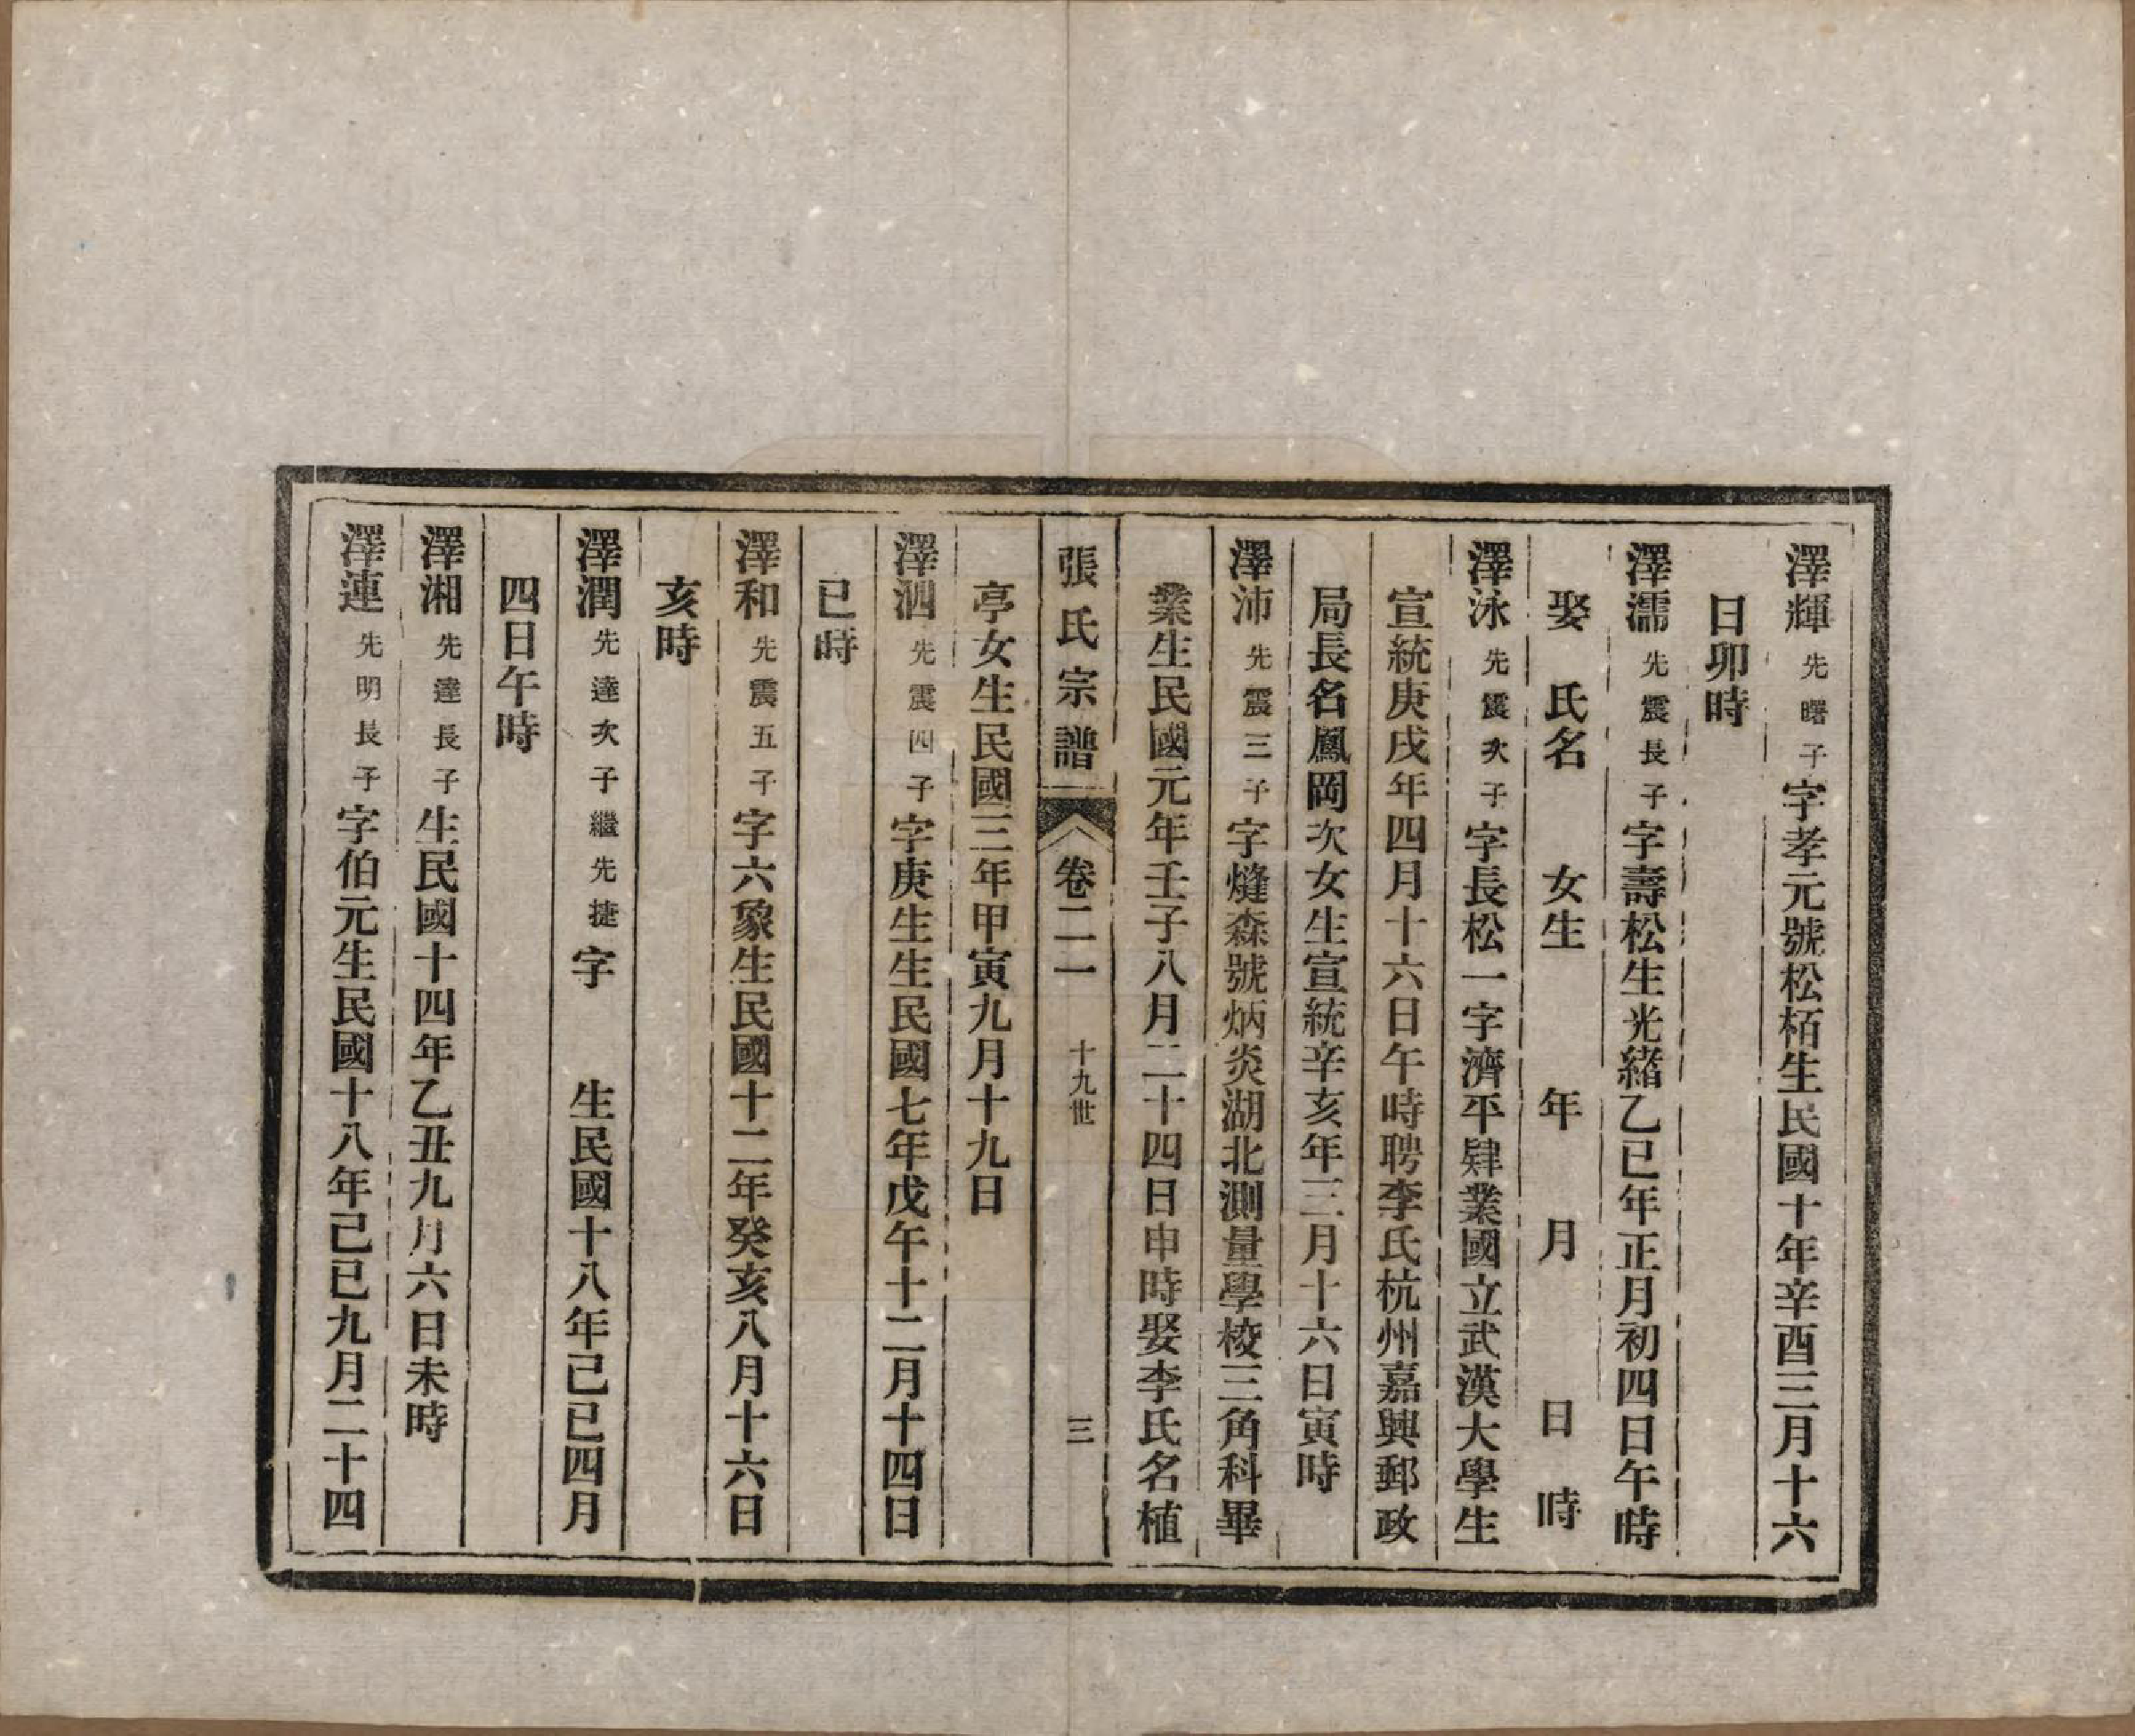 澤輝先曙子字孝元號松栢生民國十年辛酉三月十六
日卯時
澤濡先震長子字壽松生光緒乙巳年正月初四日午時
娶 氏名 女生 年 月 日 時
澤泳先震次子字長松一字濟平肄業國立武漢大學生
宣統庚戌年四月十六日午時聘李氏杭州嘉興郵政
局長名鳳岡次女生宣統辛亥年三月十六日寅時
澤沛先震三子字熢森號炳炎湖北測量學校三角科畢
業生民國元年壬子八月二十四日申時娶李氏名植
張氏宗譜 卷二一 十九世 三
亭女生民國三年甲寅九月十九日
澤泗先震四子字庚生生民國七年戊午十二月十四日
巳時
澤和先震五子字六象生民國十二年癸亥八月十六日
亥時
澤潤先達次子繼先捷字 生民國十八年己巳四月
四日午時
澤湘先達長子生民國十四年乙丑九月六日未時
澤連先明長子字伯元生民國十八年己巳九月二十四